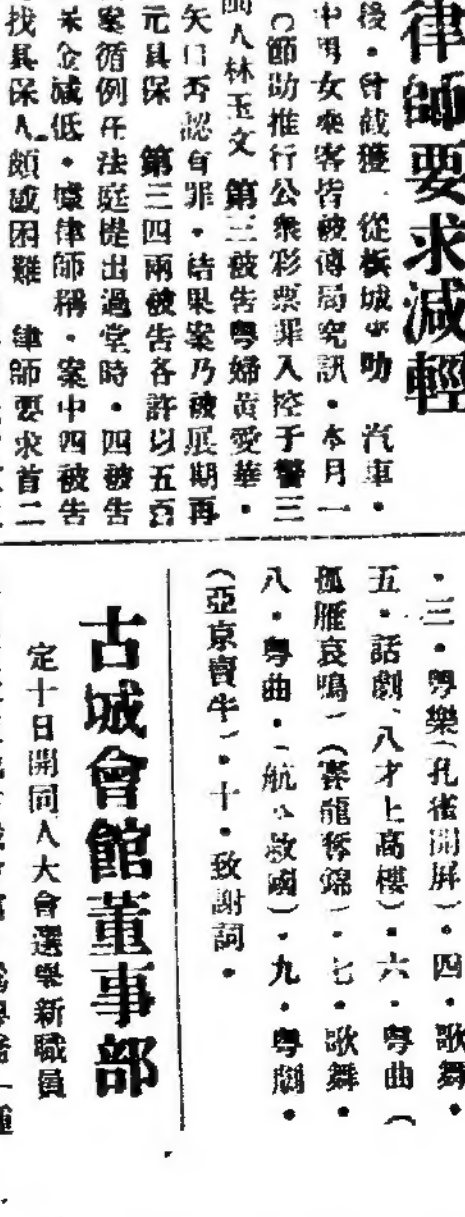 律師要求減輕
後・曾截獲一從檳城來叻　汽車・
中男女乘客皆被傳局究訊・本月一
〇節助推行公衆彩票罪入控于警三
閩人林玉文　第三被告粤婦黃愛華・
矢口否認有罪・結果案乃被展期再
元具保　第三四兩被告各許以五百
案循例在法庭提出過堂時・四被告
金減低・據律師稱・案中四被告
找具保人頗感困難　律師要求首二
・三・粤樂（孔雀開屏）・四・歌舞・
五・話劇（八才上高樓）・六・粤曲（
孤雁哀鳴）（客龍奪錦）・七・歌舞・
八・粤曲・（航公救國）・九・粤劇・
（亞京賣牛）・十・致謝詞・
古城會館董事部
定十日開同人大會選舉新職員